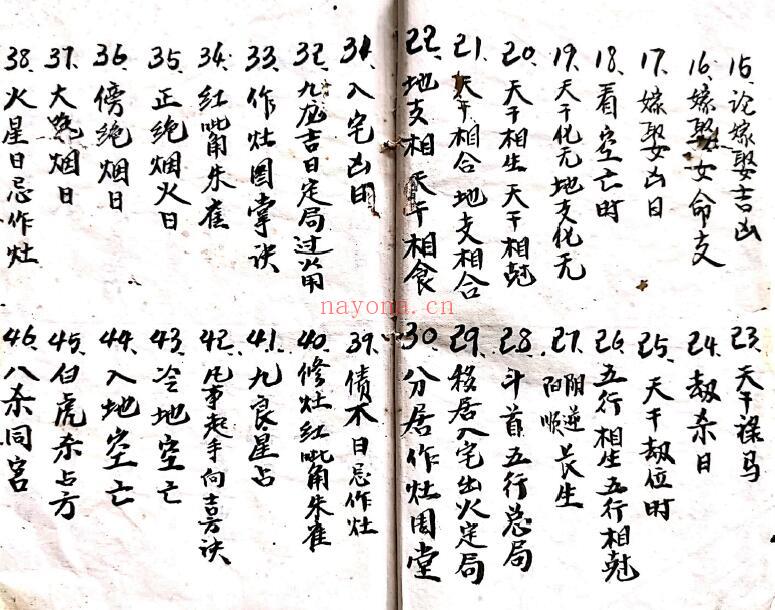 15、论嫁娶吉凶
16、嫁娶女命支
17、嫁娶女凶日
18、看空亡时
19、天干化无地支化无
20、天干相生天干相尅
21、天干相合地支相合
22、地支相天干相食
23、天干禄马
24、劫杀日
25、天干劫位时
26、五行相生五行相尅
27、阴逆阳顺长生
28、斗首五行总局
29、移居入宅出火定局
30、分居作灶周堂
31、入宅凶日
32、九龙吉日定局过火用
33、作灶图掌诀
34、红吡角朱雀
35、正绝烟火日
36、傍绝烟日
37、大绝烟日
38、火星日忌作灶
39、债不日忌作灶
40、修灶红吡角朱雀
41、九良星占
42、凡事起手向吉方诀
43、冷地空亡
44、入地空亡
45、白虎杀占方
46、八杀同宫
nayona.cn